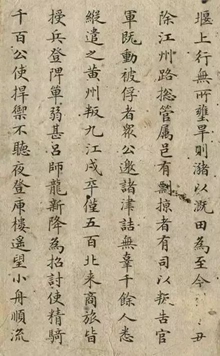 堰上行無所壅旱則瀦以溉田為至今 丑
除江州路総管属邑有剽掠者有司以叛告官
軍既動被俘者衆公邀諸津詰無辜千餘人悉
縦遣之黄州叛九江戍卒僅五百北来商旅皆
授兵登陴單弱甚吕師龍新降為招討使精騎
千百公使捍禦不聽夜登庾樓遥望小舟順流